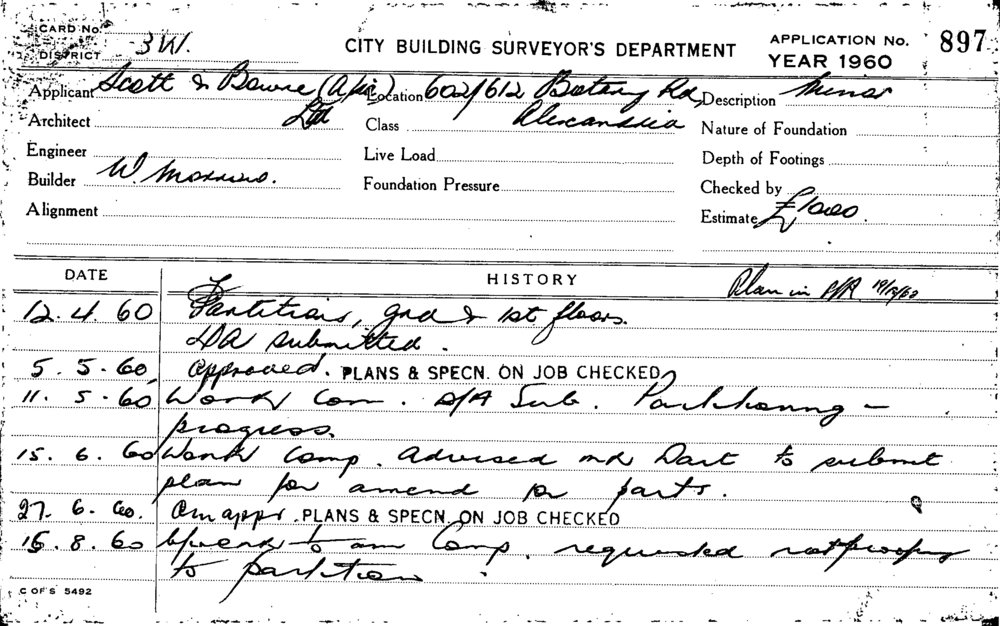 CARD No. CITY BUILDING SURVEYOR'S DEPARTMENT APPLICATION No. 897
DISTRICT 3W. YEAR 1960
Applicant Scott & Bowne (A/sia) Location 602/612 Botany Rd, Description Minor
Architect Ltd Class Alexandria Nature of Foundation
Engineer Live Load Depth of Footings
Builder W. Foundation Pressure Checked by
Alignment Estimate £1000.
DATE HISTORY Plan in 19/12/60
12.4.60 Partitions, grd & 1st floors.
DA submitted.
5.5.60 Approved. PLANS & SPECN. ON JOB CHECKED
11.5.60 Work Com. Sub. Partitioning –
progress.
15.6.60 Work Comp. Advised Mr Dart to submit
plan for amend to parts.
27.6.60. Am appr. PLANS & SPECN. ON JOB CHECKED
15.8.60 Work to am Comp. requested ratproofing
to partition.
C OF S 5492